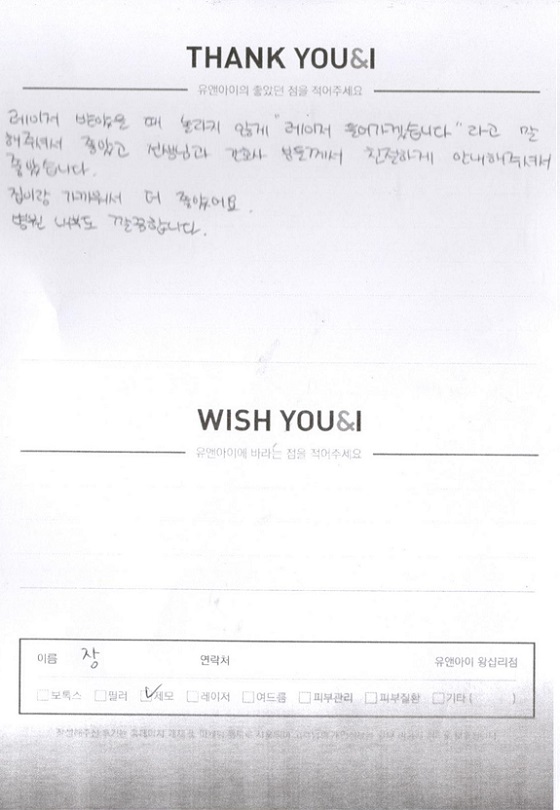 THANK YOU&I
유앤아이의 좋았던 점을 적어주세요
레이저 받았을 때 놀라지 않게 "레이저 들어가겠습니다" 라고 말
해주셔서 좋았고 선생님과 간호사 분들께서 친절하게 안내해주셔서
좋았습니다.
집이랑 가까워서 더 좋았어요.
병원 내부도 깔끔합니다.
WISH YOU&I
유앤아이에 바라는 점을 적어주세요
이름 장 연락처 유앤아이 왕십리점
보톡스 필러 제모 레이저 여드름 피부관리 피부질환 기타 ( )